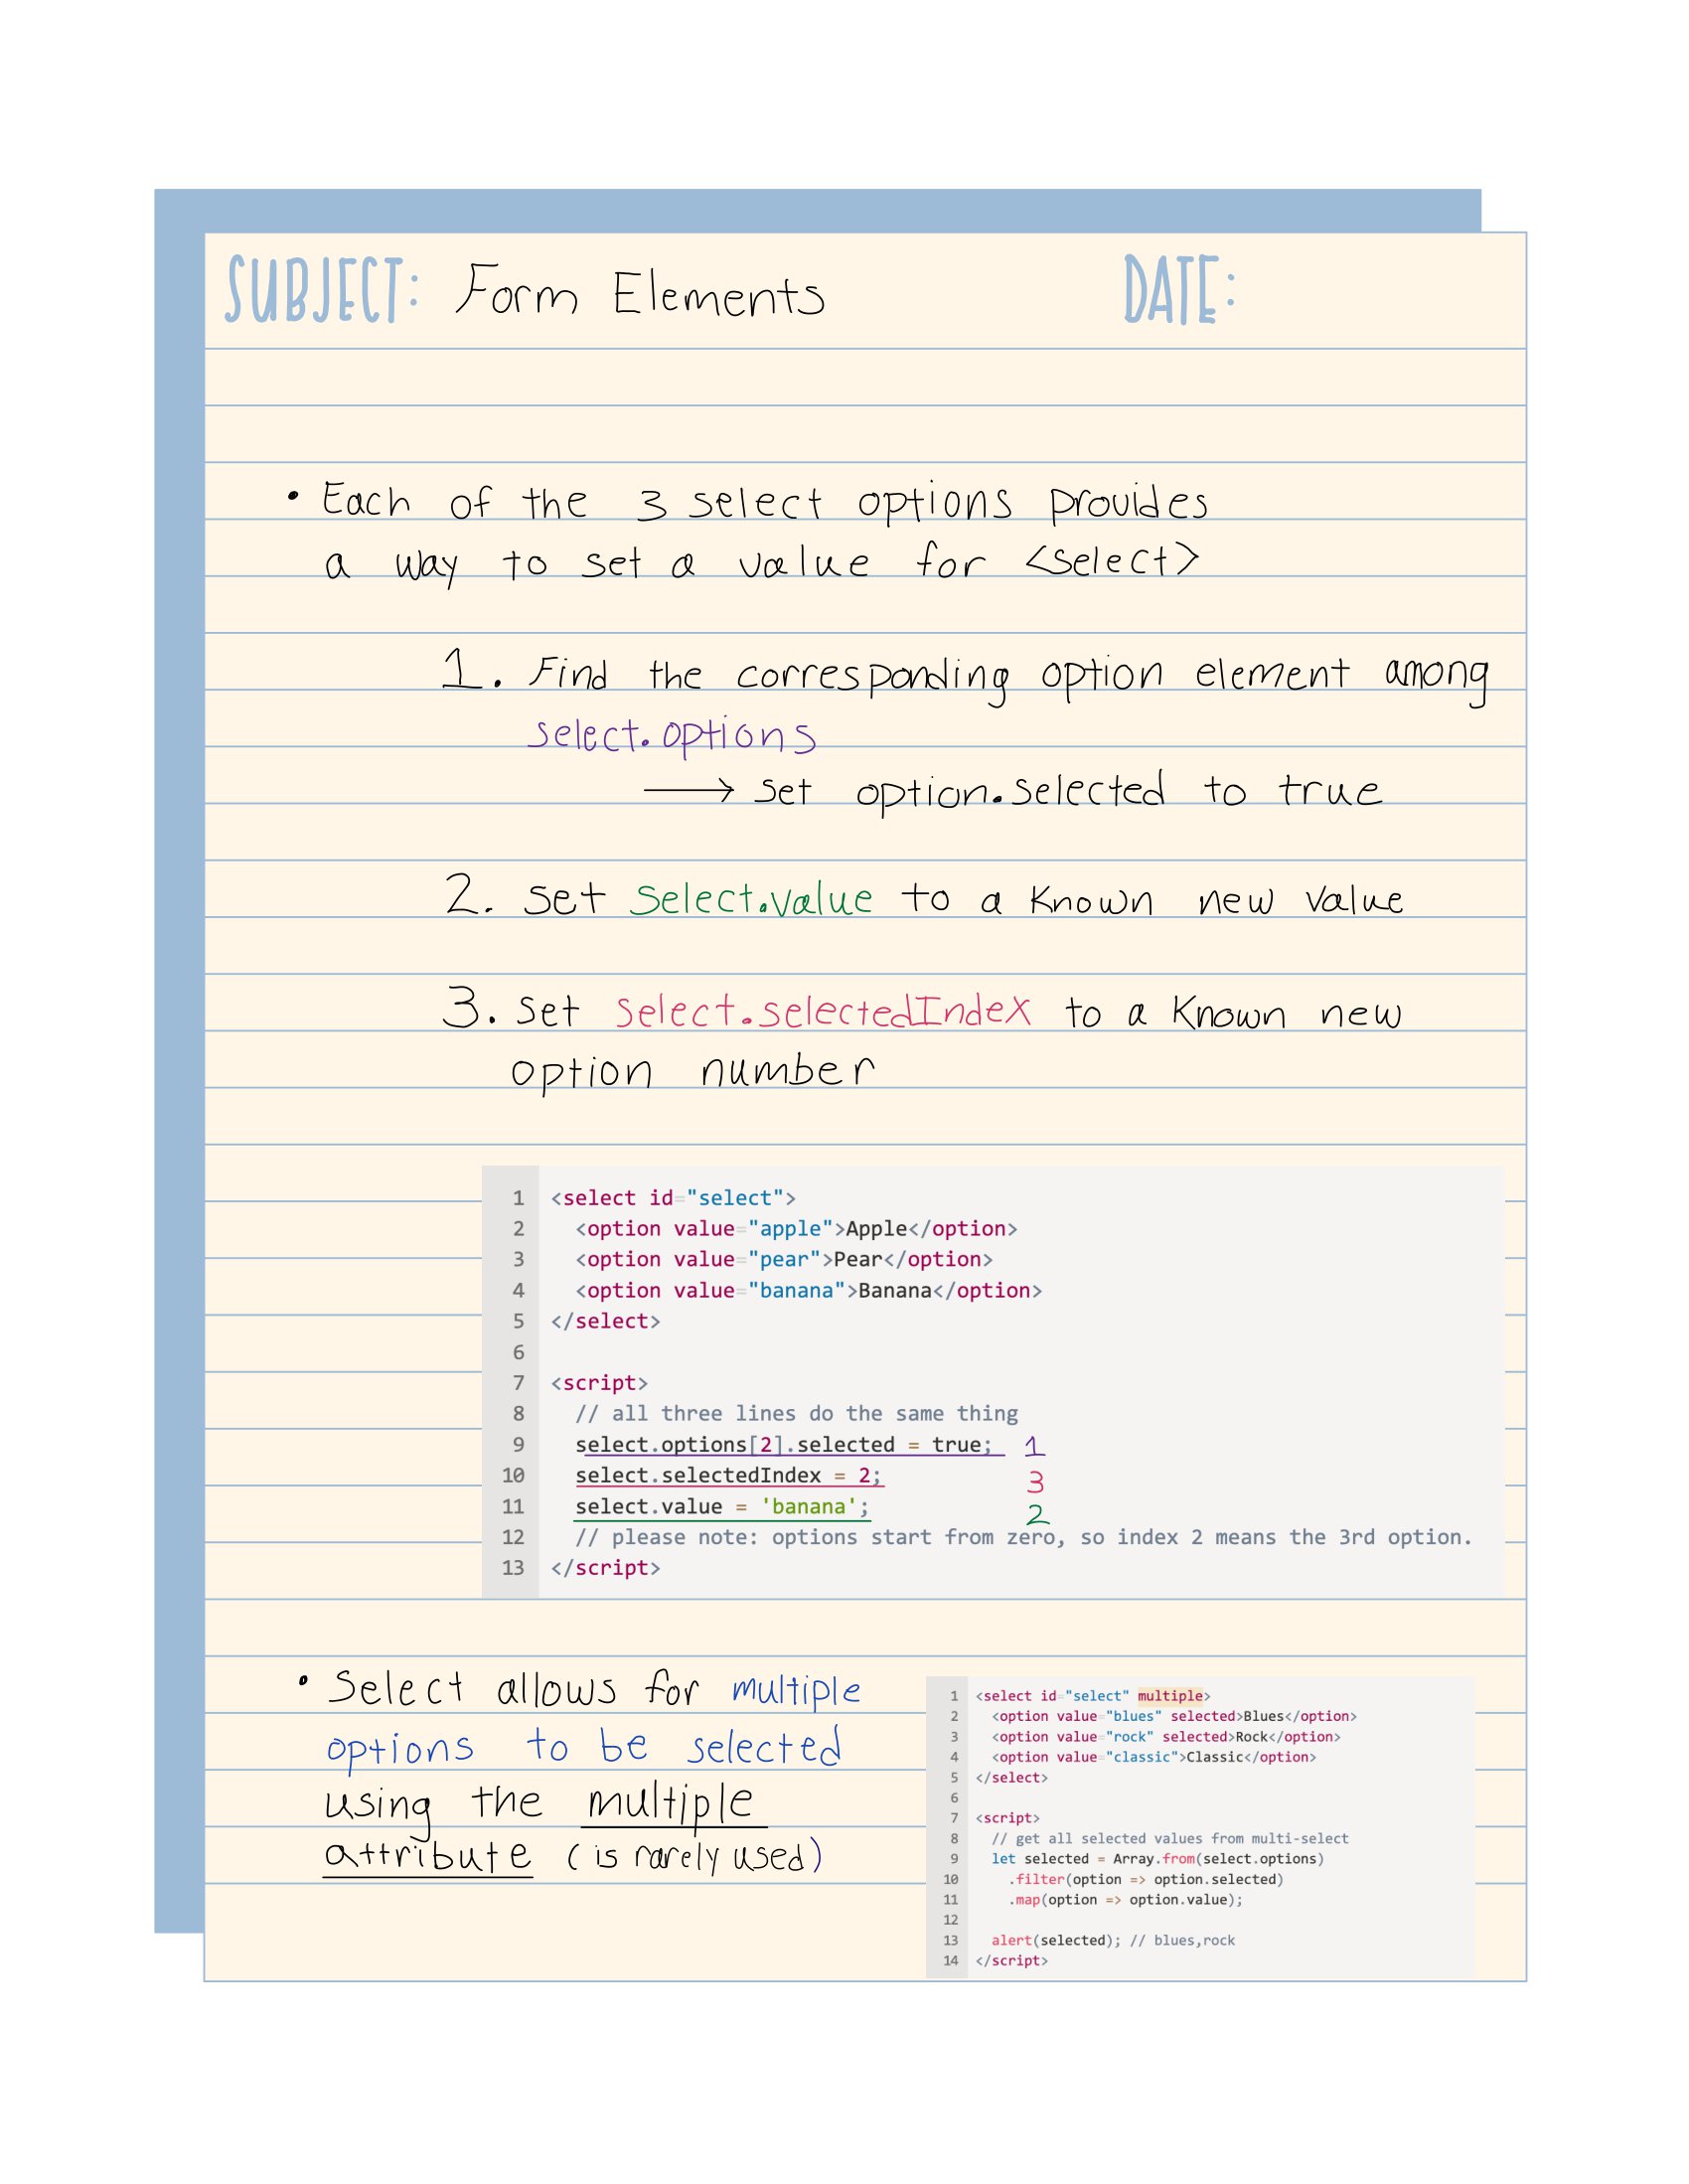 SUBJECT: Form Elements DATE:
• Each of the 3 select options provides
a way to set a value for <select>
1. Find the corresponding option element among
select.options
→ set option.selected to true
2. set select.value to a known new value
3. set select.selectedIndex to a known new
option number
1 <select id="select">
2 <option value="apple">Apple</option>
3 <option value="pear">Pear</option>
4 <option value="banana">Banana</option>
5 </select>
6
7 <script>
8 // all three lines do the same thing
9 select.options[2].selected = true; 1
10 select.selectedIndex = 2; 3
11 select.value = 'banana'; 2
12 // please note: options start from zero, so index 2 means the 3rd option.
13 </script>
• Select allows for multiple
options to be selected
using the multiple
attribute (is rarely used)
1 <select id="select" multiple>
2 <option value="blues" selected>Blues</option>
3 <option value="rock" selected>Rock</option>
4 <option value="classic">Classic</option>
5 </select>
6
7 <script>
8 // get all selected values from multi-select
9 let selected = Array.from(select.options)
10 .filter(option => option.selected)
11 .map(option => option.value);
12
13 alert(selected); // blues,rock
14 </script>